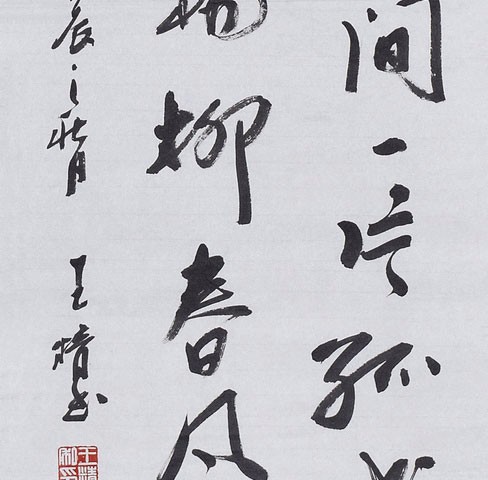 间一片孤
杨柳春风
辰之秋月 王 书